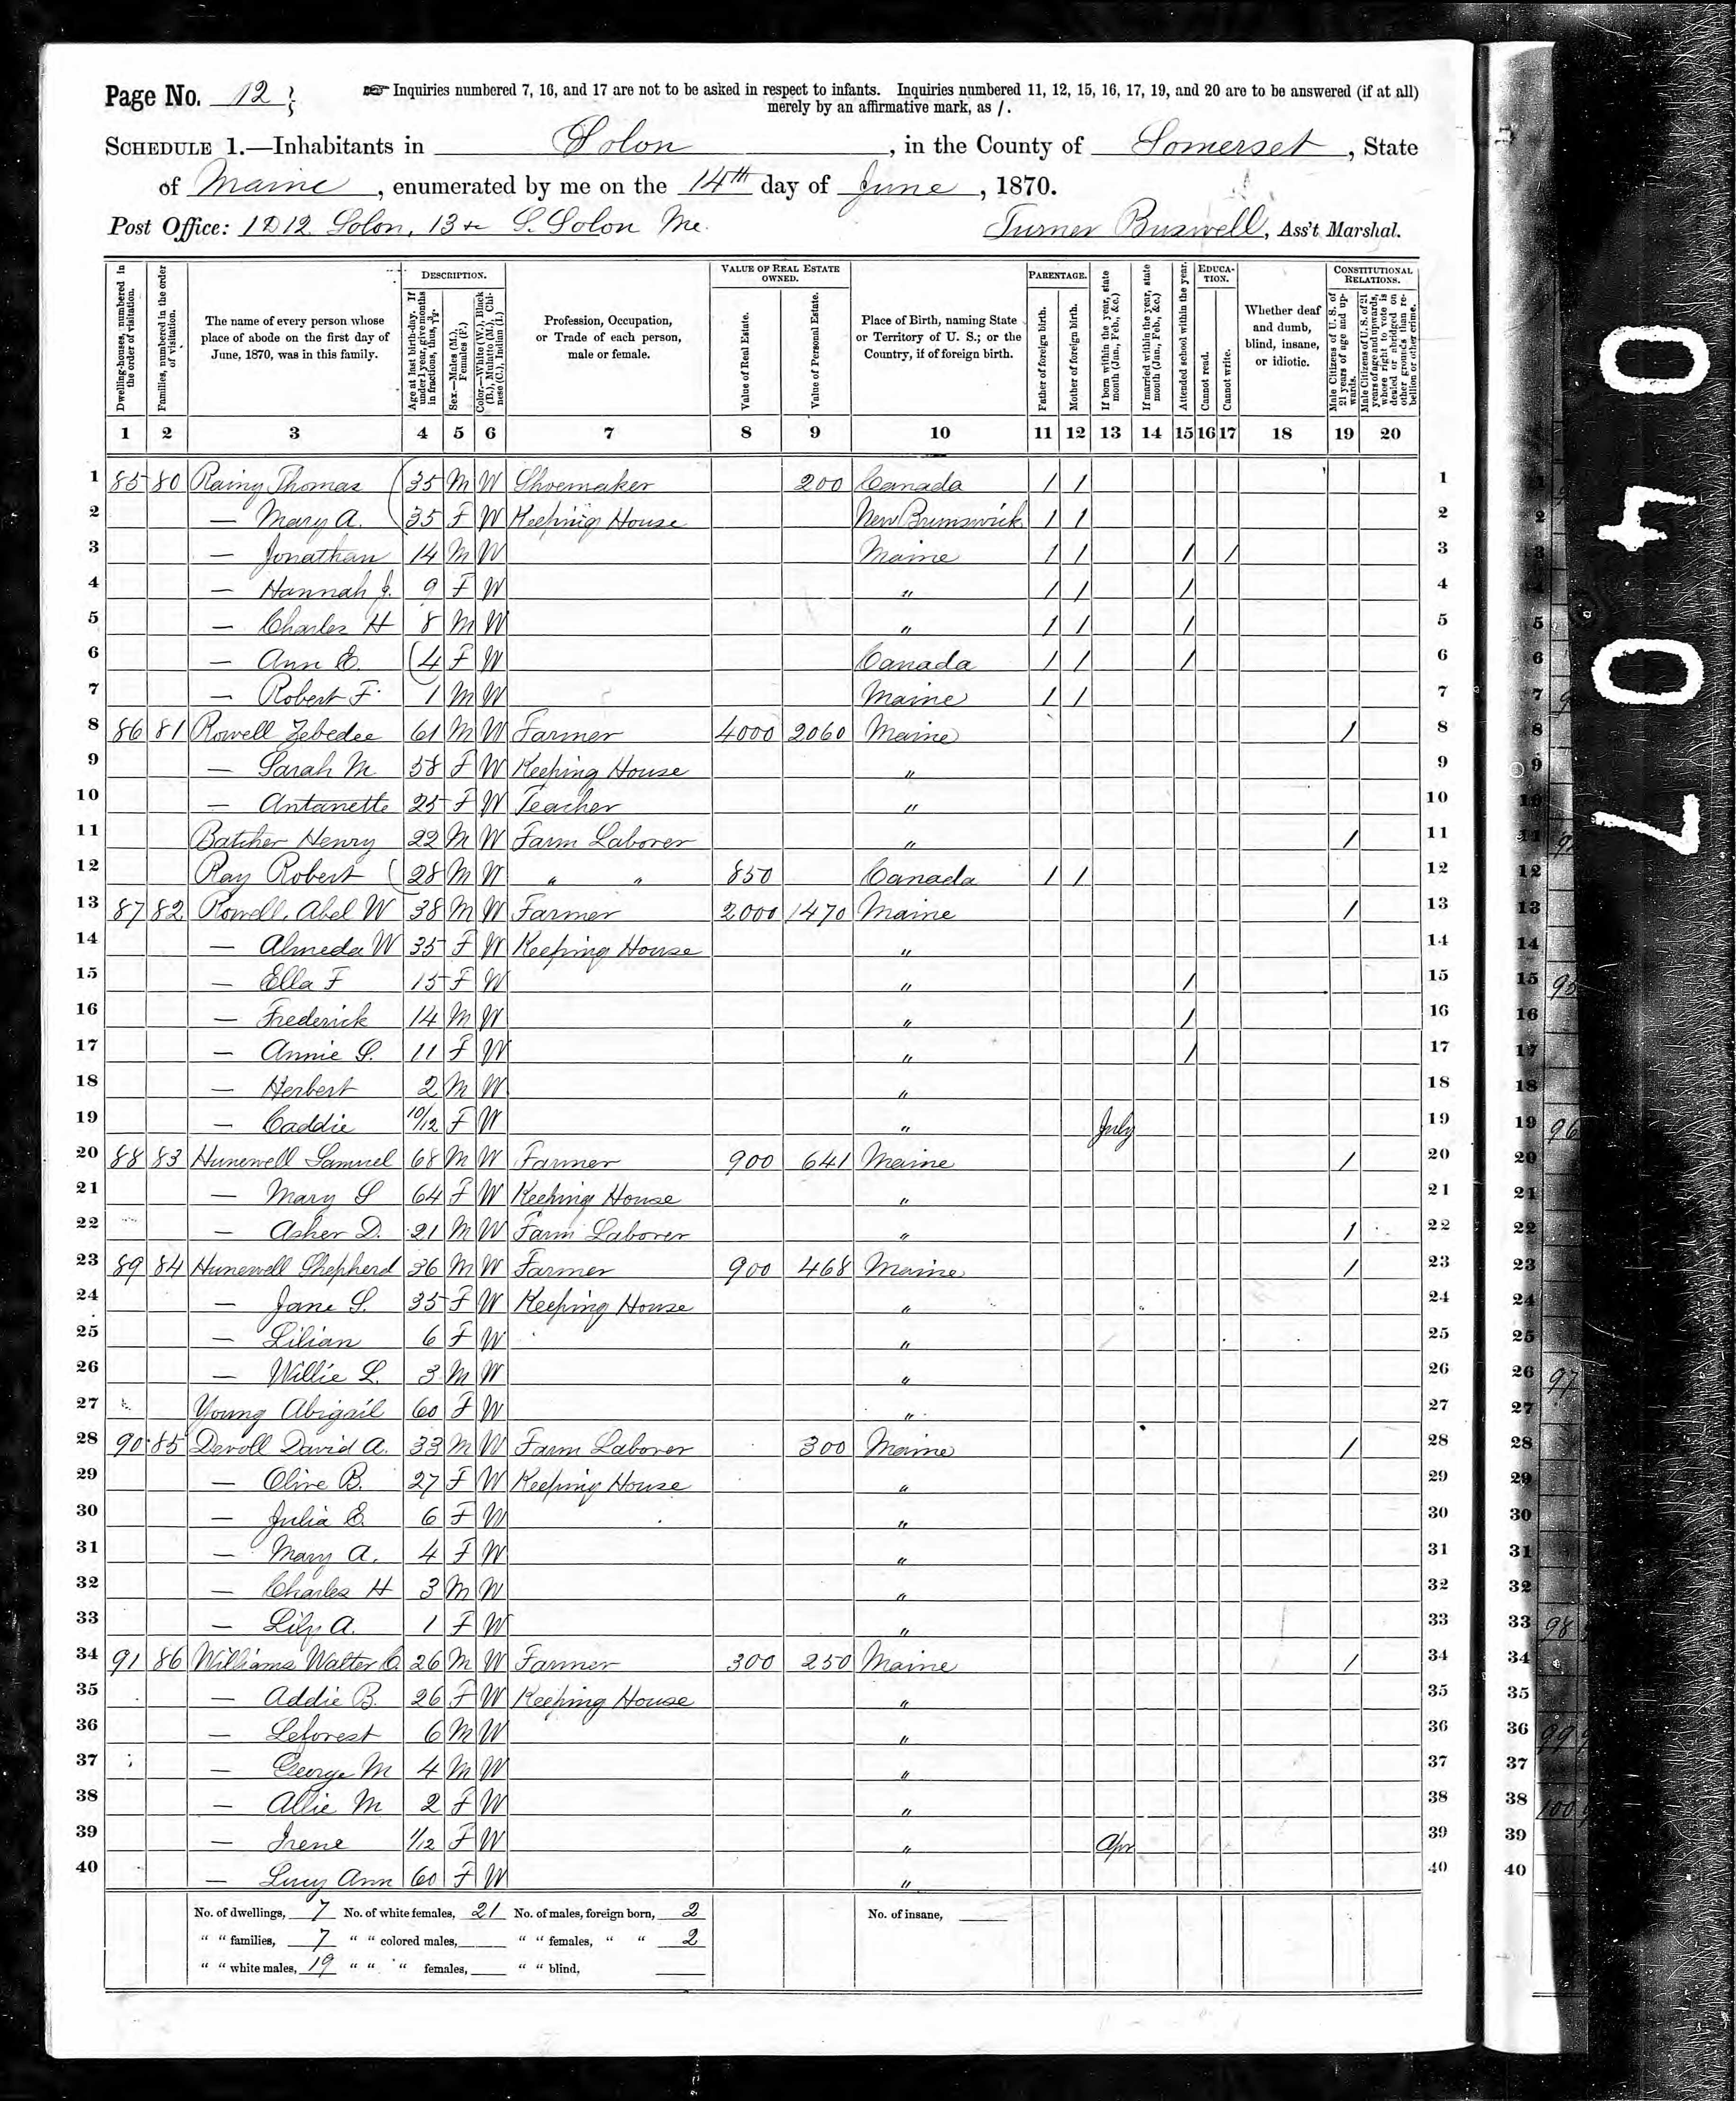 Page No. 12
Inquiries numbered 7, 16, and 17 are not to be asked in respect to infants. Inquiries numbered 11, 12, 15, 16, 17, 19, and 20 are to be answered (if at all)
merely by an affirmative mark, as /.
SCHEDULE 1.—Inhabitants in Solon, in the County of Somerset, State
of Maine, enumerated by me on the 14th day of June, 1870.
Post Office: Solon, S. Solon Me. Turner Buswell, Ass't Marshal.
DESCRIPTION. VALUE OF REAL ESTATE OWNED. PARENTAGE. EDUCATION. CONSTITUTIONAL RELATIONS.
Dwelling-houses, numbered in the order of visitation.
Families, numbered in the order of visitation.
The name of every person whose place of abode on the first day of June, 1870, was in this family.
Age at last birth-day. If under 1 year, give months in fractions, thus, 3/12.
Sex.—Males (M.), Females (F.)
Color.—White (W.), Black (B.), Mulatto (M.), Chinese (C.), Indian (I.)
Profession, Occupation, or Trade of each person, male or female.
Value of Real Estate.
Value of Personal Estate.
Place of Birth, naming State or Territory of U. S.; or the Country, if of foreign birth.
Father of foreign birth.
Mother of foreign birth.
If born within the year, state month (Jan., Feb., &c.)
If married within the year, state month (Jan., Feb., &c.)
Attended school within the year.
Cannot read.
Cannot write.
Whether deaf and dumb, blind, insane, or idiotic.
Male Citizens of U. S. of 21 years of age and upwards.
Male Citizens of U. S. of 21 years of age and upwards, whose right to vote is denied or abridged on other grounds than rebellion or other crime.
1 2 3 4 5 6 7 8 9 10 11 12 13 14 15 16 17 18 19 20
1 85 80 Rainy Thomas 35 M W Shoemaker 200 Canada / / 1
2 — Mary A. 35 F W Keeping House New Brunswick / / 2
3 — Jonathan 14 M W Maine / / / / 3
4 — Hannah J. 9 F W " / / / 4
5 — Charles H 8 M W " / / / 5
6 — Ann E. 4 F W Canada / / / 6
7 — Robert F. 1 M W Maine / / 7
8 86 81 Rowell Zebedee 61 M W Farmer 4000 2060 Maine / 8
9 — Sarah M 58 F W Keeping House " 9
10 — Antanette 25 F W Teacher " 10
11 Batcher Henry 22 M W Farm Laborer " / 11
12 Ray Robert 28 M W " " 850 Canada / / 12
13 87 82 Rowell, Abel W 38 M W Farmer 2000 1470 Maine / 13
14 — Almeda W 35 F W Keeping House " 14
15 — Ella F 15 F W " / 15
16 — Frederick 14 M W " / 16
17 — Annie S. 11 F W " / 17
18 — Herbert 2 M W " 18
19 — Caddie 10/12 F W " July 19
20 88 83 Hunewell Samuel 68 M W Farmer 900 641 Maine / 20
21 — Mary S 64 F W Keeping House " 21
22 — Asher D. 21 M W Farm Laborer " / 22
23 89 84 Hunewell Shepherd 36 M W Farmer 900 468 Maine / 23
24 — Jane S. 35 F W Keeping House " 24
25 — Lilian 6 F W " 25
26 — Willie L. 3 M W " 26
27 Young Abigail 60 F W " 27
28 90 85 Devoll David A. 33 M W Farm Laborer 300 Maine / 28
29 — Olive B. 27 F W Keeping House " 29
30 — Julia E. 6 F W " 30
31 — Mary A. 4 F W " 31
32 — Charles H 3 M W " 32
33 — Lily A. 1 F W " 33
34 91 86 Williams Walter C. 26 M W Farmer 300 250 Maine / 34
35 — Addie B. 26 F W Keeping House " 35
36 — Leforest 6 M W " 36
37 — George M 4 M W " 37
38 — Allie M 2 F W " 38
39 — Irene 1/12 F W " Apr 39
40 — Lucy Ann 60 F W " 40
No. of dwellings, 7 No. of white females, 21 No. of males, foreign born, 2 No. of insane,
" " families, 7 " " colored males, " " females, " " 2
" " white males, 19 " " " females, " " blind,
0407